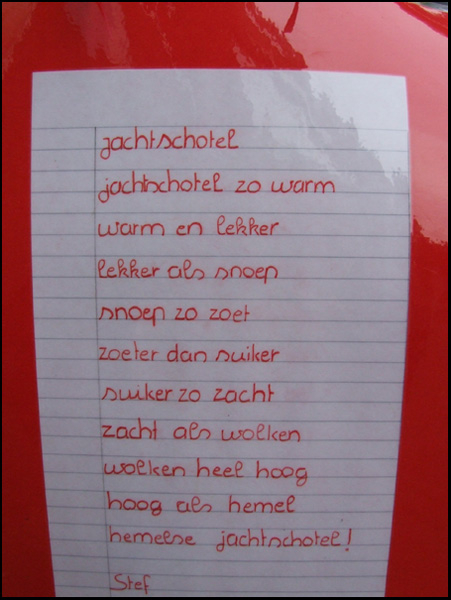 jachtschotel
jachtschotel zo warm
warm en lekker
lekker als snoep
snoep zo zoet
zoeter dan suiker
suiker zo zacht
zacht als wolken
wolken heel hoog
hoog als hemel
hemelse jachtschotel!
Stef